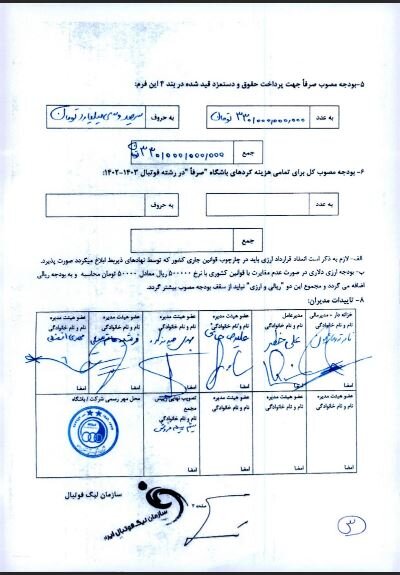 ۵-بودجه مصوب صرفاً جهت پرداخت حقوق و دستمزد قید شده در بند ۴ این فرم:
به عدد ۳۳۰٫۰۰۰٫۰۰۰٫۰۰۰ تومان به حروف سیصد و سی میلیارد تومان
جمع ۳۳۰٫۰۰۰٫۰۰۰٫۰۰۰
۶-بودجه مصوب کل برای تمامی هزینه کردهای باشگاه "صرفاً" در رشته فوتبال ۱۴۰۳-۱۴۰۲:
به عدد به حروف
جمع
الف- لازم به ذکر است انعقاد قرارداد ارزی باید در چارچوب قوانین جاری کشور که توسط نهادهای ذیربط ابلاغ میگردد صورت پذیرد.
ب- بودجه ارزی دلاری در صورت عدم مغایرت با قوانین کشوری با نرخ ۵۰۰۰۰۰ ریال معادل ۵۰۰۰۰ تومان محاسبه و به بودجه ریالی
اضافه می گردد و مجموع این دو "ریالی و ارزی" نباید از سقف بودجه مصوب بیشتر گردد.
۸- تاییدات مدیران:
خزانه دار - مدیرمالی مدیرعامل عضو هیئت مدیره عضو هیئت مدیره عضو هیئت مدیره عضو هیئت مدیره
نام و نام خانوادگی نام و نام خانوادگی نام و نام خانوادگی نام و نام خانوادگی نام و نام خانوادگی نام و نام خانوادگی
علی خطیر
امضا امضا امضا امضا امضا امضا
عضو هیئت مدیره عضو هیئت مدیره عضو هیئت مدیره تصویب نهایی رئیس مجمع محل مهر رسمی شرکت / باشگاه
نام و نام خانوادگی نام و نام خانوادگی نام و نام خانوادگی نام و نام خانوادگی
امضا امضا امضا امضا
سازمان لیگ فوتبال
صفحه ۳
سازمان لیگ فوتبال ایران
۳